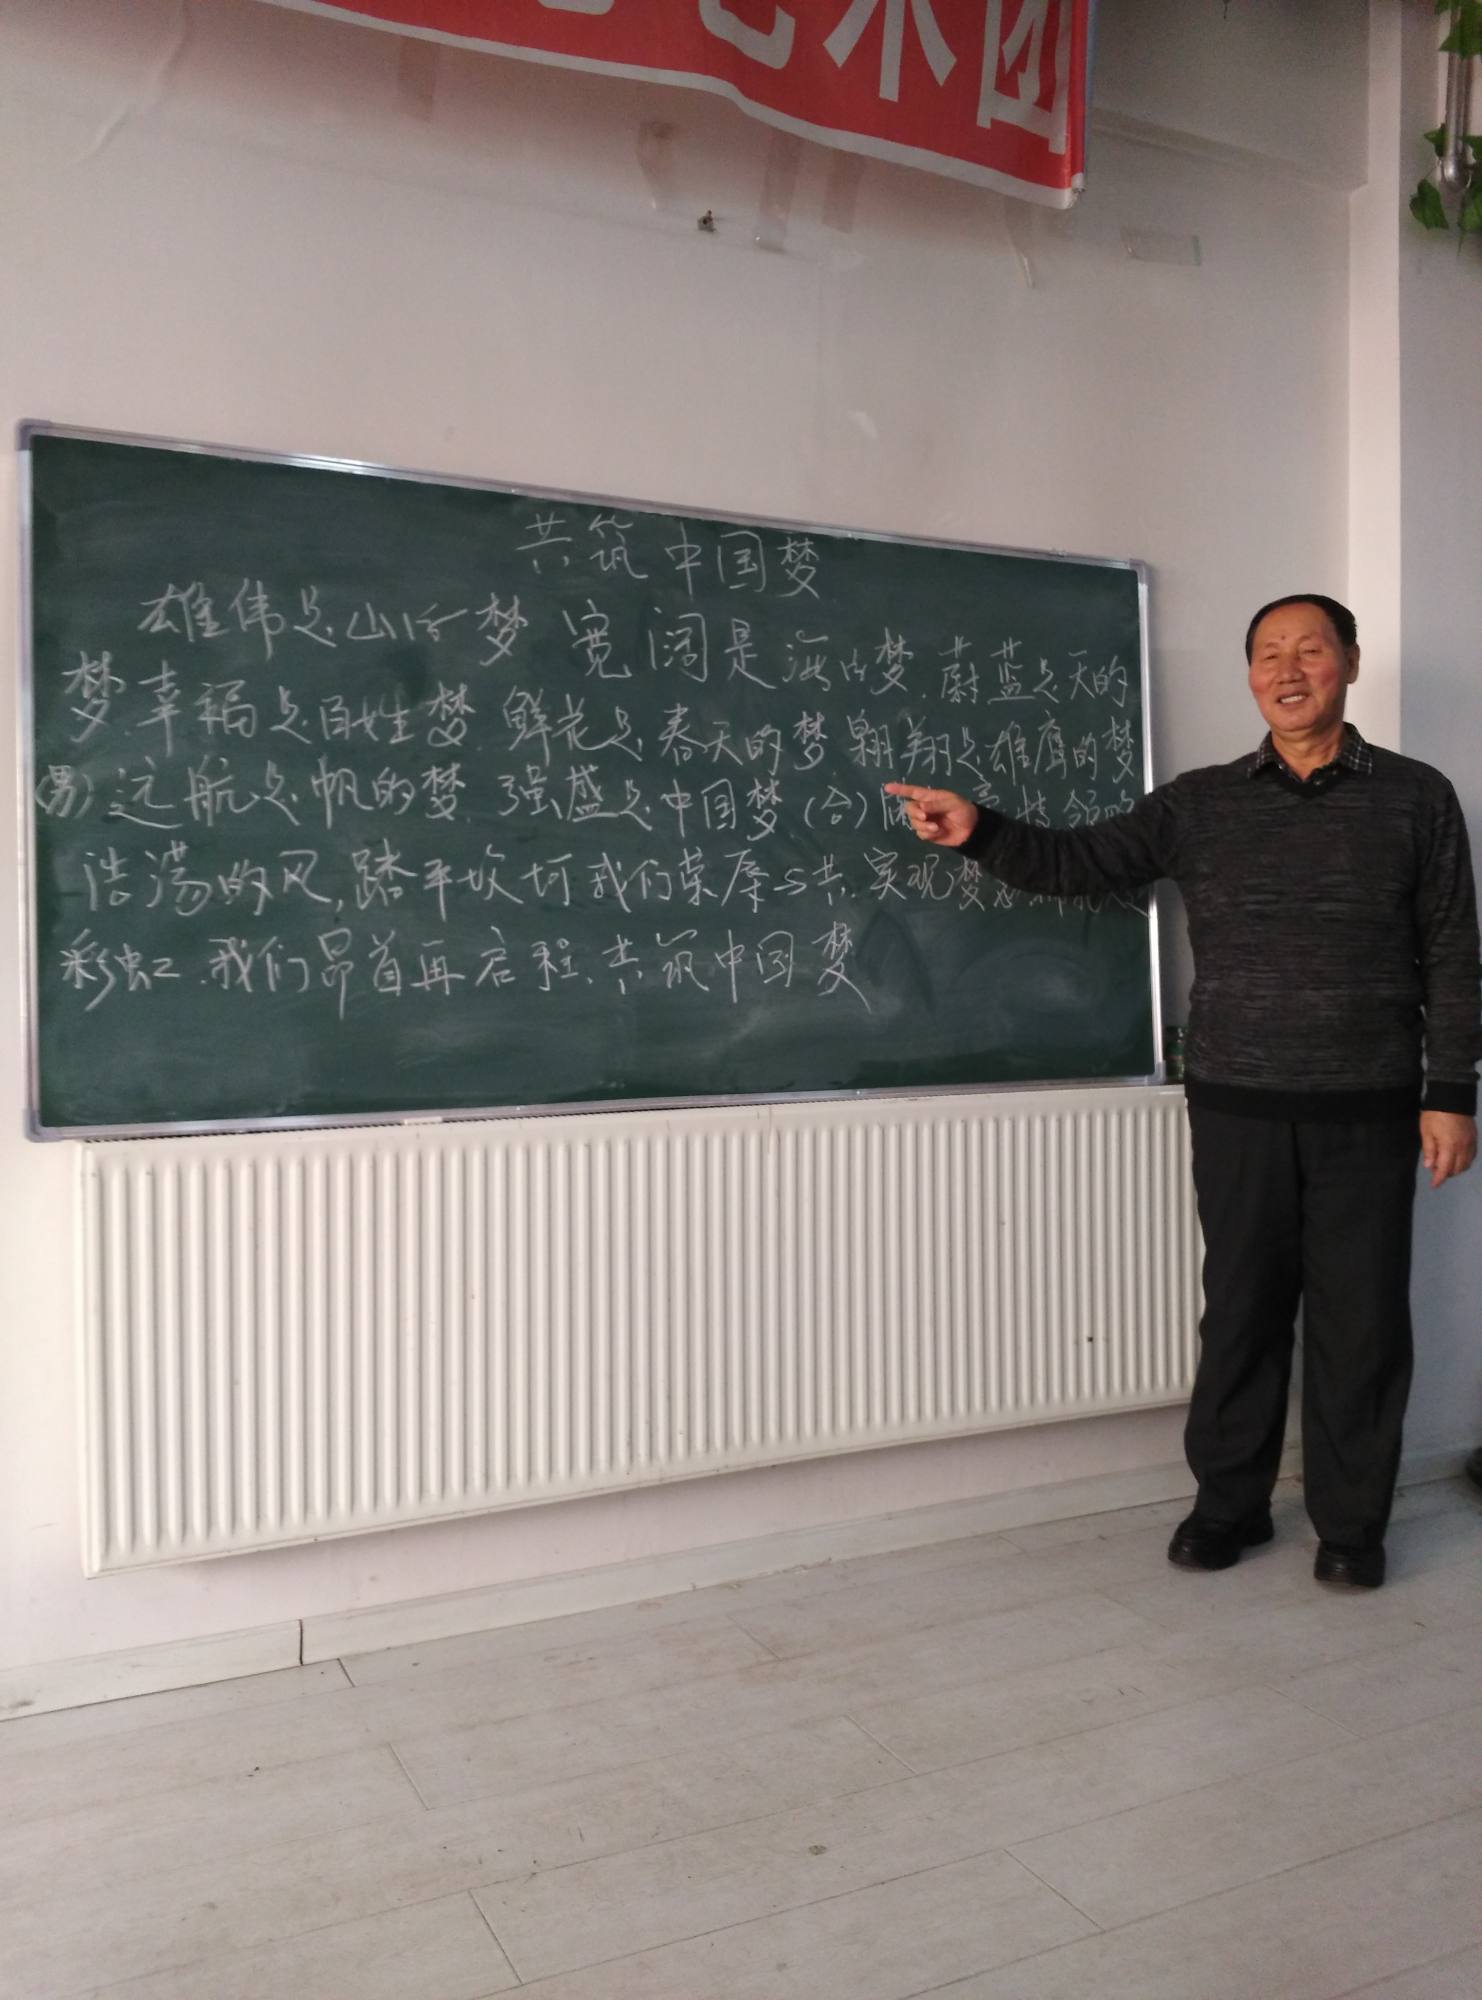 艺术团
共筑中国梦
雄伟是山的梦 宽阔是海的梦.蔚蓝是天的
梦.幸福是百姓梦.鲜花是春天的梦 翱翔是雄鹰的梦
(男)远航是帆的梦.强盛是中国梦(合)情领略
浩荡的风,踏平坎坷我们荣辱与共.实现梦
彩虹.我们昂首再启程.共筑中国梦